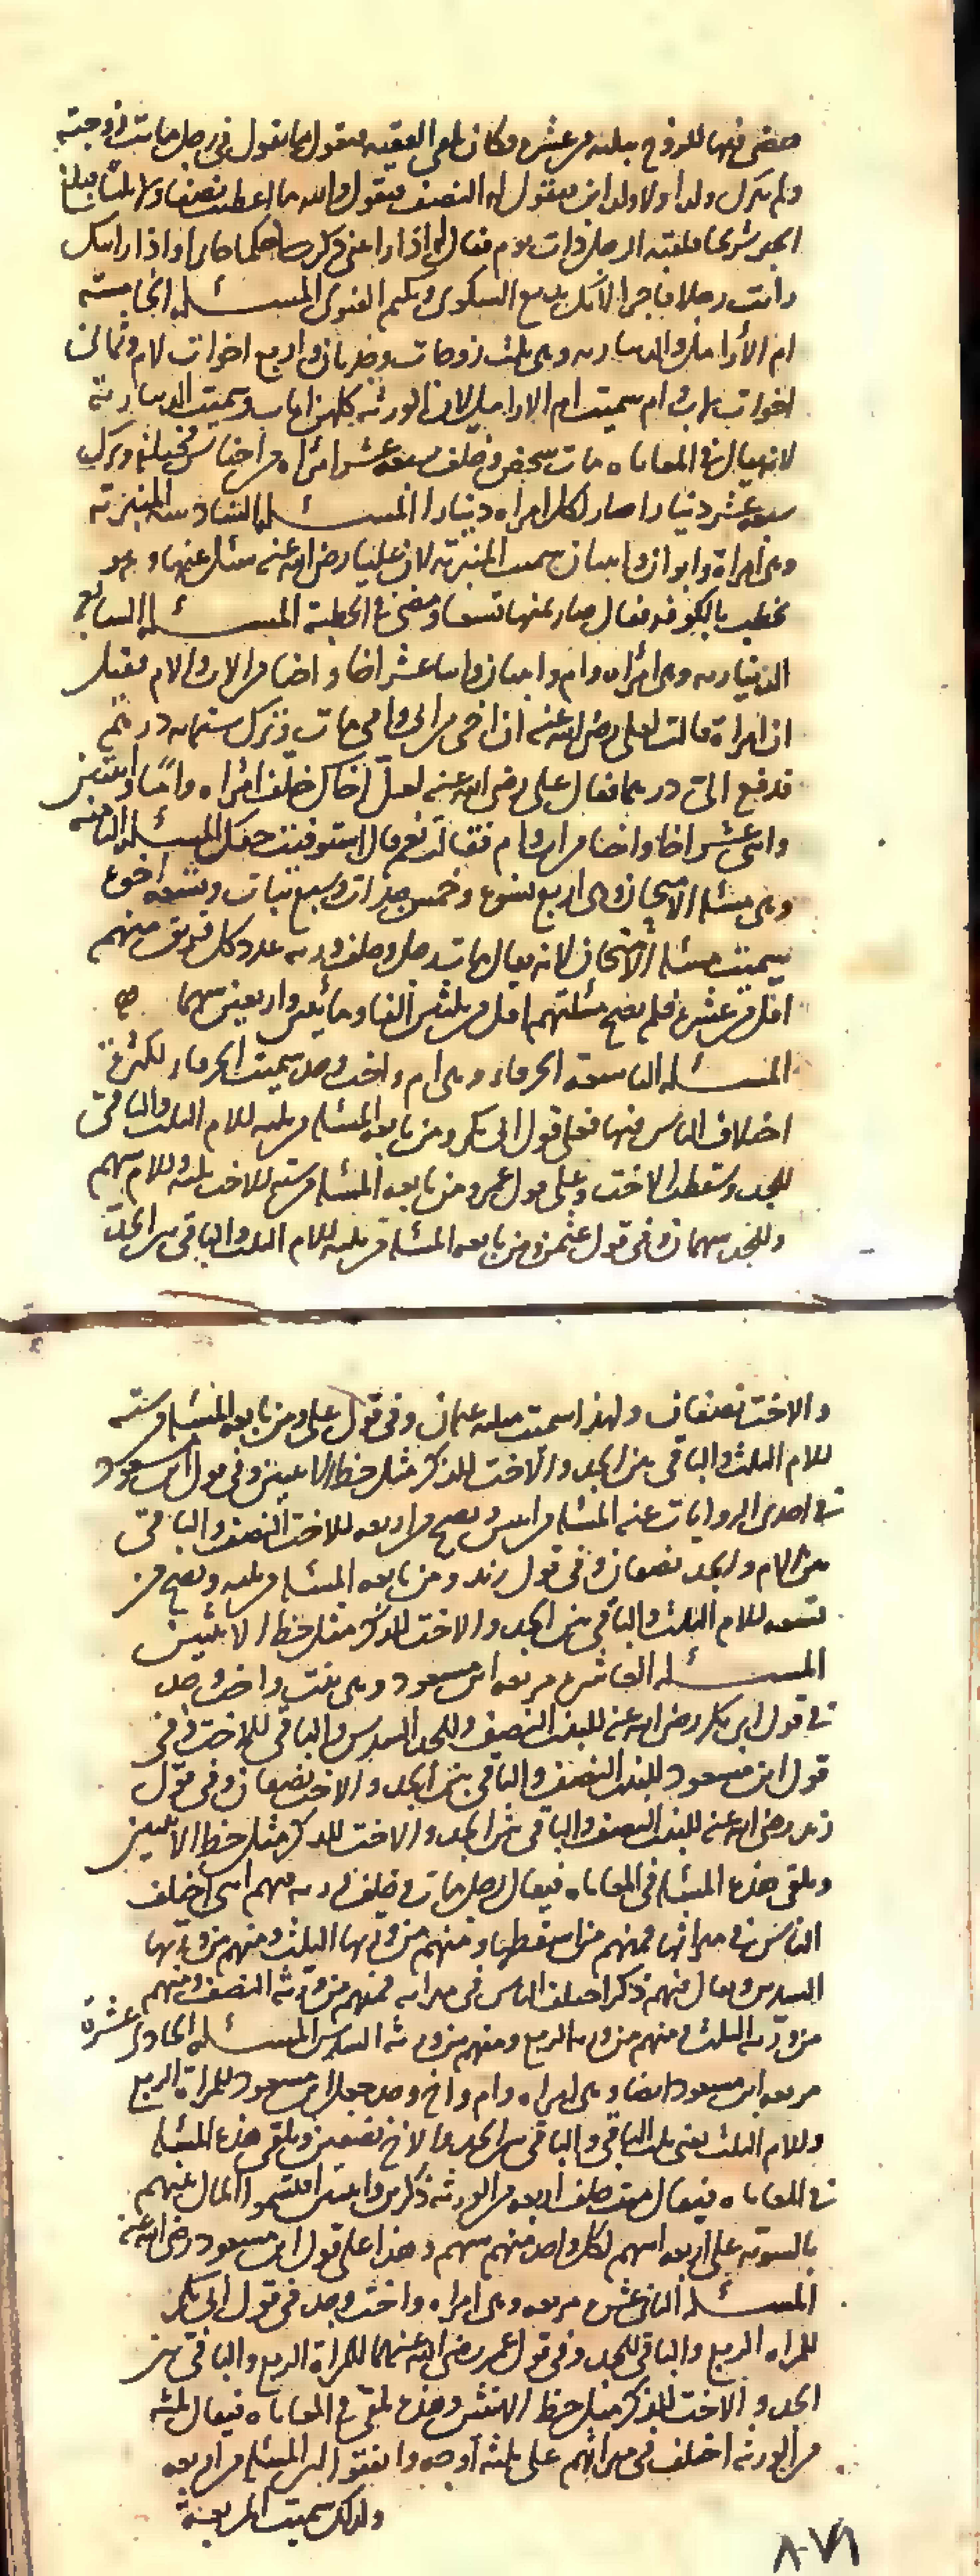 فقضى فيها للزوج بثلثه من عشره وكان يلقى الفقيه فيقول ما تقول في رجل ماتت زوجته
ولم تترك ولدا ولا ولد ابن فيقول له النصف فيقول والله ما اعطيت نصفا ولا ثلثا فبلغ
شريحا الرجل ذات يوم فقال له اذا رايتني ذكرت حكما جايرا واذا رايتك
رايت رجلا فاجرا لانك تذيع الشكوى وتكتم الفتوى المسئلة الخامسة
ام الأرامل والدينارية وهي ثلث زوجات وجدتان واربع اخوات لام وثمان
اخوات لاب وام سميت ام الارامل لان الورثة كلهن اناث وسميت الدينارية
لانه يقال في المعاياه مات شخص وخلف سبعة عشر امراه من اجناس مختلفة وترك
سبعة عشر دينارا صار لكل امراه دينارا المسئلة السادسة المنبرية
وهي امراة وابوان وابنتان سميت المنبرية لان عليا رضي الله عنه سئل عنها وهو
يخطب بالكوفة فقال صار ثمنها تسعا ومضى في الخطبة المسئلة السابعة
الدينارية وهي امراه وام وابنتان واثنا عشر اخا واختا من الاب والام يقال
ان امراة قالت لعلي رضي الله عنه ان اخي من ابي وامي مات وترك ستمايه درهم
فدفع الي درهما فقال علي رضي الله عنه لعل اخاك خلف امراه واما وابنتين
واثني عشر اخا واختا من اب وام فقالت نعم قال استوفيت حقك المسئلة الثامنة
وهي مسئلة الامتحان وهي اربع نسوة وخمس جدات وسبع بنات وتسعة اخوة
سميت مسئلة الامتحان لانه يقال مات رجل وخلف ورثه عدد كل فريق منهم
اقل من عشرة فلم تصح مسئلتهم من اقل من ثلثين الفا ومائتين واربعين سهما
المسئلة التاسعة الخرقاء وهي ام واخت وجد سميت الخرقاء لكثرة
اختلاف الناس فيها فعلى قول ابي بكر ومن تابعه المسئلة من ثلثه للام الثلث والباقي
للجد وتسقط الاخت وعلى قول عمر ومن تابعه المسئلة من سته للاخت ثلثه وللام سهم
وللجد سهمان وفي قول عثمن ومن تابعه المسئلة من ثلثه للام الثلث والباقي بين الجد
والاخت نصفان ولهذا سميت مثلثه عثمان وفي قول علي ومن تابعه المسئلة من سته
للام الثلث والباقي بين الجد والاخت للذكر مثل حظ الانثيين وفي قول ابن مسعود
في احدى الروايات عنه المسئلة من اثنين وتصح من اربعه للاخت النصف والباقي
بين الام والجد نصفان وفي قول زيد ومن تابعه المسئلة من ثلثه وتصح من
تسعه للام الثلث والباقي بين الجد والاخت للذكر مثل حظ الانثيين
المسئلة العاشرة مربعه ابن مسعود وهي بنت واخت وجد
في قول ابي بكر رضي الله عنه للبنت النصف وللجد السدس والباقي للاخت وفي
قول ابن مسعود للبنت النصف والباقي بين الجد والاخت نصفان وفي قول
زيد رضي الله عنه للبنت النصف والباقي بين الجد والاخت للذكر مثل حظ الانثيين
وتلقى هذه المسئلة في المعاياه فيقال رجل مات وخلف ورثه منهم انثى اختلف
الناس في ميراثها فمنهم من اسقطها ومنهم من ورثها الثلث ومنهم من ورثها
السدس ويقال منهم ذكر اختلف الناس في ميراثه فمنهم من ورثه النصف ومنهم
من ورثه الثلث ومنهم من ورثه الربع ومنهم من ورثه السدس المسئلة الحادي عشرة
مربعه ابن مسعود ايضا وهي امراه وام واخ وجد جعل ابن مسعود للمراة الربع
وللام الثلث يعني ثلث الباقي والباقي بين الجد والاخ نصفين وتلقى هذه المسئلة
في المعاياه فيقال ميت خلف اربعه من الورثة ذكرين وانثيين اقتسموا المال بينهم
بالسوية على اربعه اسهم لكل واحد منهم سهم وهذا على قول ابن مسعود رضي الله عنه
المسئلة الثاني عشر مربعه وهي امراه واخت وجد في قول ابي بكر
للمراه الربع والباقي للجد وفي قول عمر رضي الله عنهما للمراة الربع والباقي بين
الجد والاخت للذكر مثل حظ الانثيين وهذه تلقى في المعاياه فيقال ثلثه
من الورثه اختلف في ميراثهم على ثلثه اوجه واتفقوا ان المسئلة من اربعه
ولذلك سميت المربعة